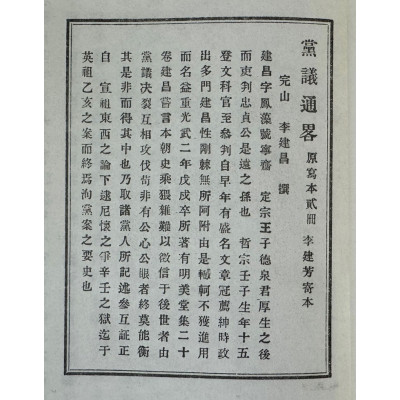 黨議通畧 原寫本貳冊 李建芳寄本
完山 李建昌 撰
建昌字鳳藻號寧齋 定宗王子德泉君厚生之後
而吏判忠貞公是遠之孫也 哲宗壬子生年十五
登文科官至叅判自早年有盛名文章冠薦紳時政
出多門建昌性剛棘無所阿附由是轗軻不獲進用
而名益重光武二年戊戌卒所著有明美堂集二十
卷建昌嘗言本朝史乘猥雜難以徵信于後世者由
黨議決裂互相攻伐苟非有公心公眼者終莫能衡
其是非而得其中也乃取諸黨人所記述叅互証正
自 宣祖東西之論下逮尼懷之爭辛壬之獄迄于
英祖乙亥之案而終焉洵黨案之要史也